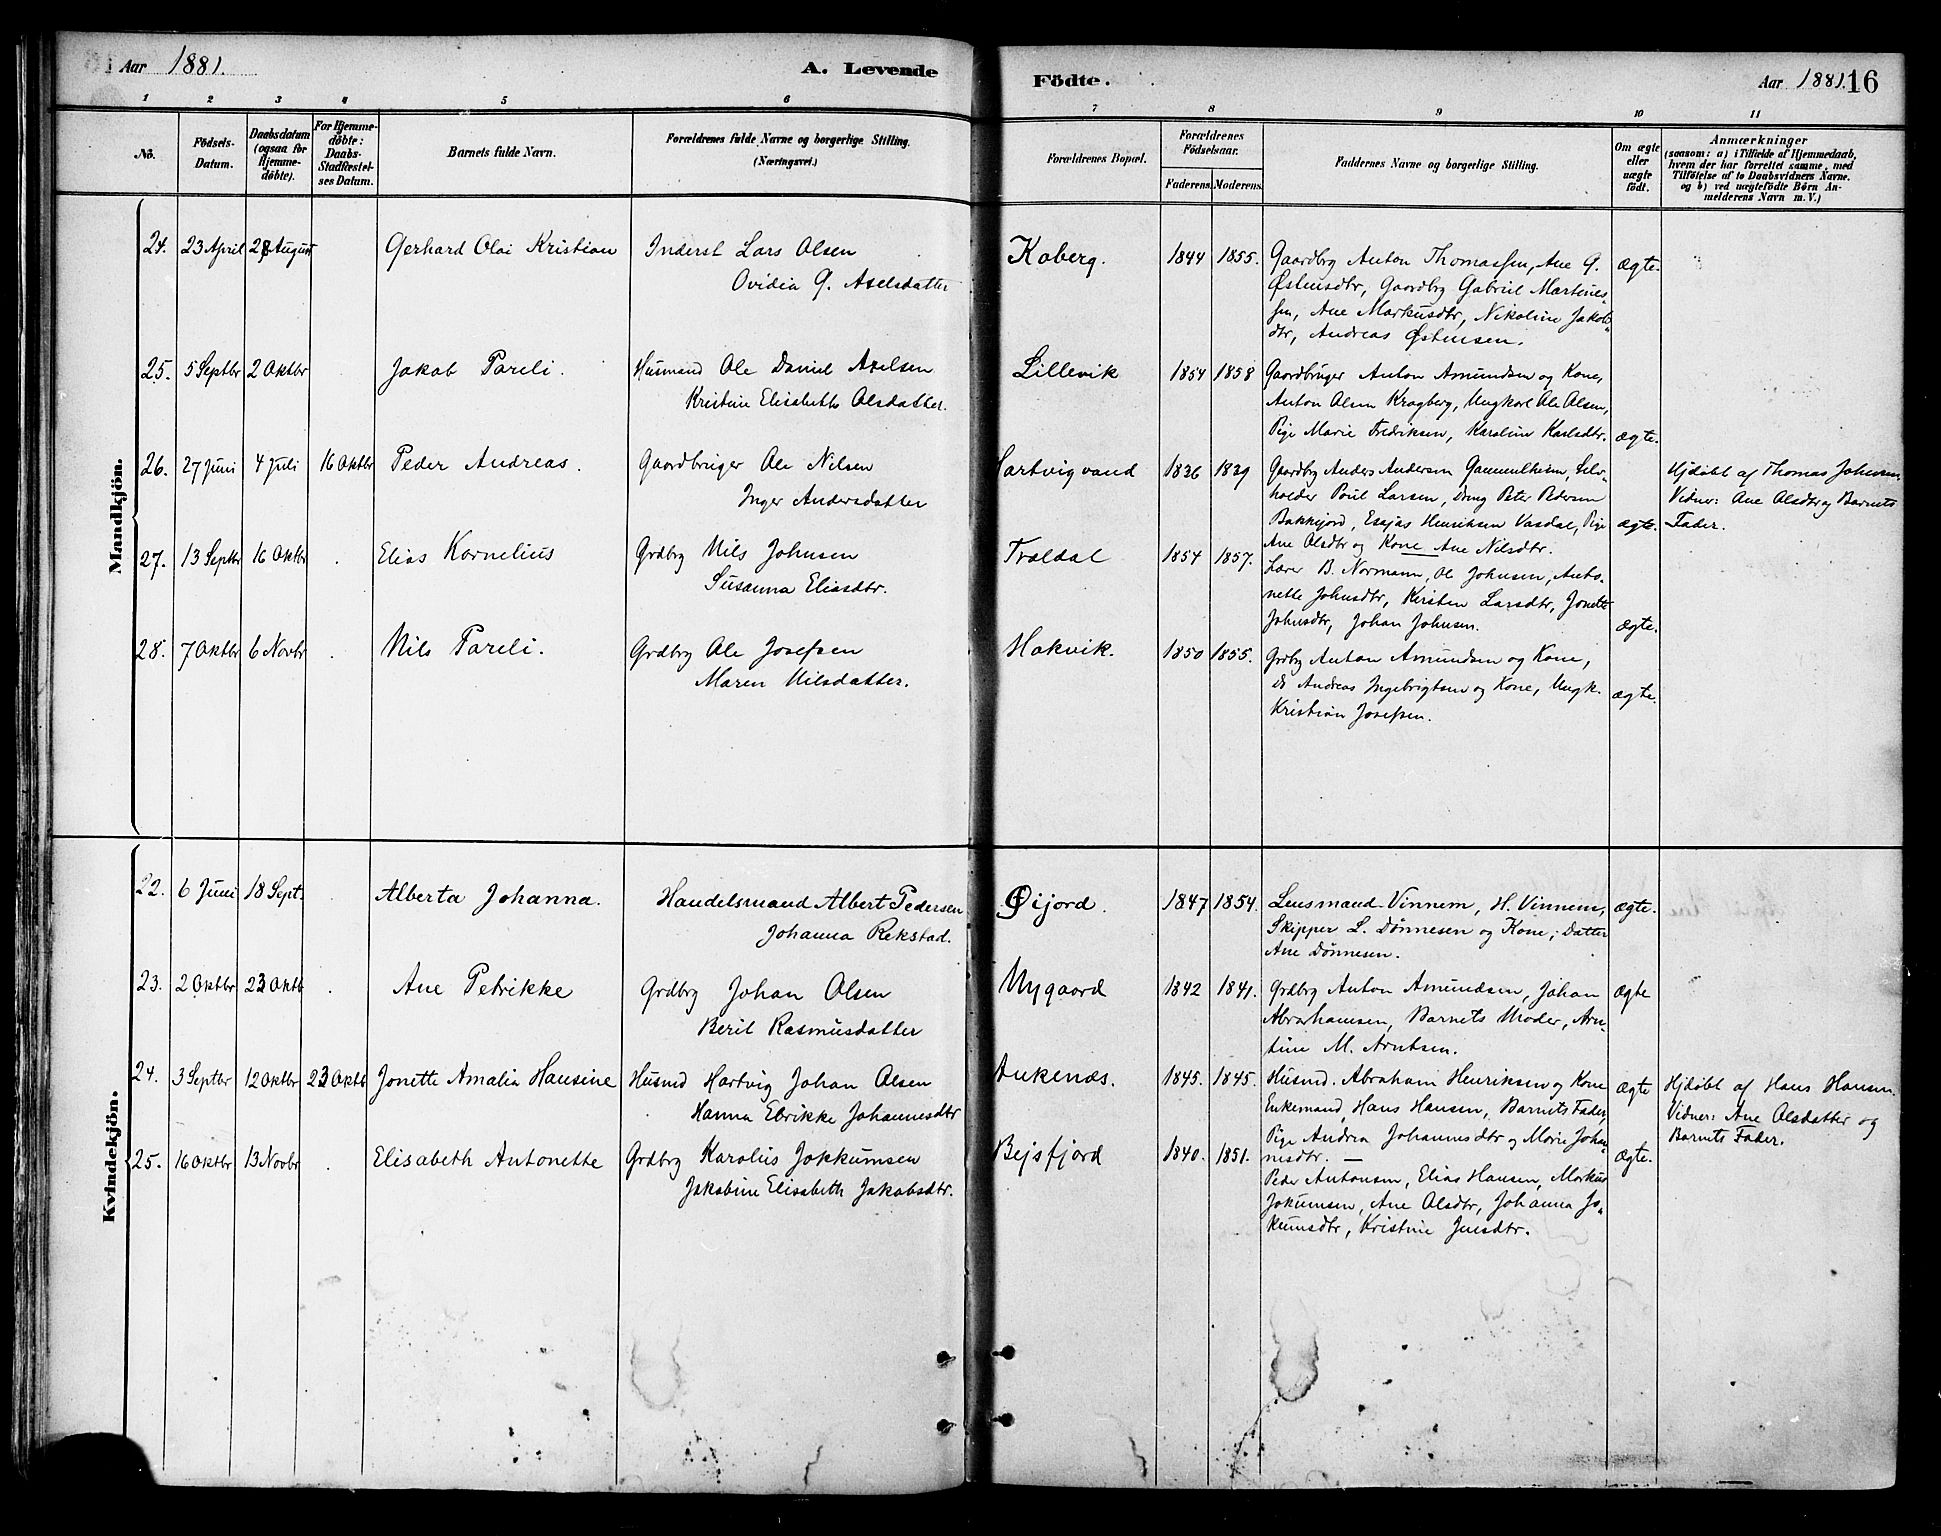 Aar 1881.
A. Levende Födte.
Aar 1881. 16
1 2 3 4 5 6 7 8 9 10 11
No.
Födsels-Datum.
Daabsdatum (ogsaa for Hjemme-döbte).
For Hjemme-döbte: Daabs-Stadfæstel-ses Datum.
Barnets fulde Navn.
Forældrenes fulde Navne og borgerlige Stilling. (Næringsvei.)
Forældrenes Bopæl.
Forældrenes Födselsaar.
Faderens. Moderens.
Faddernes Navne og borgerlige Stilling.
Om ægte eller uægte födt.
Anmærkninger
(saasom: a) i Tilfælde af Hjemmedaab,
hvem der har forrettet samme, med
Tilföielse af to Daabsvidners Navne.
og b) ved uægtefödte Börn An-
melderens Navn m. V.)
Mandkjön.
24. 23 April 28 August Gerhard Olai Kristian Inderst Lars Olsen Kaberg. 1844 1855. Gaardbrg Anton Thomassen, Ane G. ægte.
Ovidia G. Axelsdatter Østensdtr, Gaardbrg Gabriel Martines-
sen, Ane Markusdtr, Nikoline Jakobs-
dtr, Andreas Østensen.
25. 5 Septbr 2 Oktbr Jakob Pareli. Husmand Ole Daniel Axelsen Lillevik 1854 1858 Gaardbruger Anton Amundsen og Kone,
Kristine Elisabeth Olsdatter. Anton Olsen Kragberg, Ungkarl Ole Olsen,
Pige Marie Fredriksen, Karoline Karlsdtr. ægte.
26. 27 Juni 4 Juli 16 Oktbr Peder Andreas. Gaardbruger Ole Nilsen Hartvigvand 1836 1839 Gaardbrg Anders Andersen Gammelheim, Selv- Hjdøbt af Thomas Johnsen.
Inger Andersdatter holder Poul Larsen, Dreng Peter Pedersen Vidner: Ane Olsdtr og Barnets
Bakkejord, Esajas Henriksen Vasdal, Pige ægte. Fader.
Ane Olsdtr og Kone Ane Nilsdtr.
27. 13 Septbr 16 Oktbr Elias Kornelius Grdbrg Nils Johnsen Trældal 1854 1857.
Susanna Eliasdtr. Lærer B. Normann, Ol Johnsen, Anto-
nette Johnsdtr, Kirsten Larsdtr, Jonette
Johnsdtr, Johan Johnsen. ægte.
28. 7 Oktbr 6 Novbr Nils Pareli. Grdbrg Ole Josefsen Hakvik. 1850 1855. Grdbrg Anton Amundsen og Kone,
Maren Nilsdatter. do Andreas Ingebrigtsen og Kone, Ungk. ægte.
Kristian Josefsen.
Kvindekjön.
22. 6 Juni 18 Sept. Alberta Johanna. Handelsmand Albert Pedersen Øijord. 1847 1854. Lensmand Vinnem, H. Vinnem, ægte.
Johanna Rekstad. Skipper L. Dønnesen og Kone, Datter
Ane Dønnesen.
23. 2 Oktbr 23 Oktb Ane Petrikke Grdbrg Johan Olsen Nygaard 1842 1841. Grdbrg Anton Amundsen, Johan ægte
Berit Rasmusdatter Abrahamsen, Barnets Moder, Arn-
tine M. Arntsen.
24. 3 Septbr 12 Oktbr 23 Oktb Jonette Amalia Hansine Husmd Hartvig Johan Olsen Ankenæs. 1845. 1845. Husmd. Abraham Henriksen og Kone ægte Hjdøbt af Hans Hansen.
Hanna Elrikke Johannesdtr Enkemand, Hans Hansen, Barnets Fader, Vidner: Ane Olsdatter og
Pige Andrea Johannesdtr og Marie Johan- Barnets Fader.
nesdtr.
25. 16 Oktbr 13 Novbr Elisabeth Antonette Grdbrg Karolius Jokkumsen Bejsfjord 1840. 1851. ægte.
Jakobine Elisabeth Jakobsdtr. Peder Antonsen, Elias Hansen, Markus
Jokumsen, Ane Olsdtr, Johanna Jo-
kumsdtr, Kristine Jensdtr.